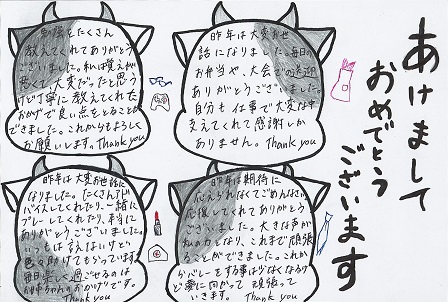 あけまして
おめでとう
ございます
勉強をたくさん
教えてくれてありがとうご
ざいました。私は覚えが
悪くて大変だったと思う
けど丁寧に教えてくれた
おかげで良い点をとることが
できました。これからもよろしく
お願いします。Thank you
昨年は大変お世
話になりました。毎日の
お弁当や、大会での送迎
ありがとうございました。
自分も仕事で大変な中
支えてくれて感謝しか
ありません。Thank you
昨年は大変お世話に
なりました。たくさんアド
バイスしてくれたり、一緒に
プレーしてくれたり、本当に
ありがとうございました。
いつもは言えないけど
色々助けてもらっています。
毎日楽しく過ごせるのは
お姉ちゃんのおかげです。
昨年は期待に
応えられなくてごめんなさい。
応援してくれてありがとう
ございました。大きな声が
私の力となり、これまで頑張
ることができました。これか
らバレーをする事は少なくなるけ
ど夢に向かって頑張って
いきます。Thank you